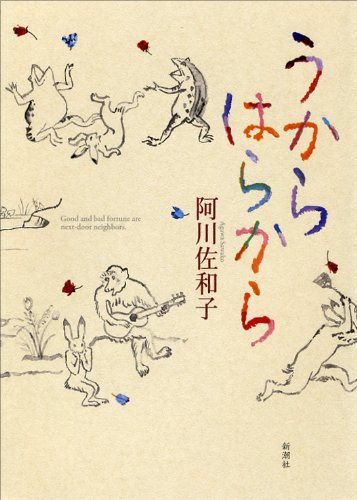 うから
はらから
阿川佐和子
Agawa Sawako
Good and bad fortune are
next-door neighbors.
新潮社